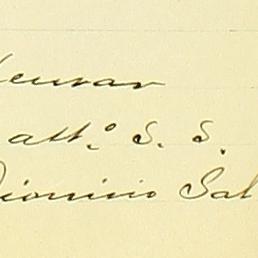 att.º S. S.
Dionisio Sal